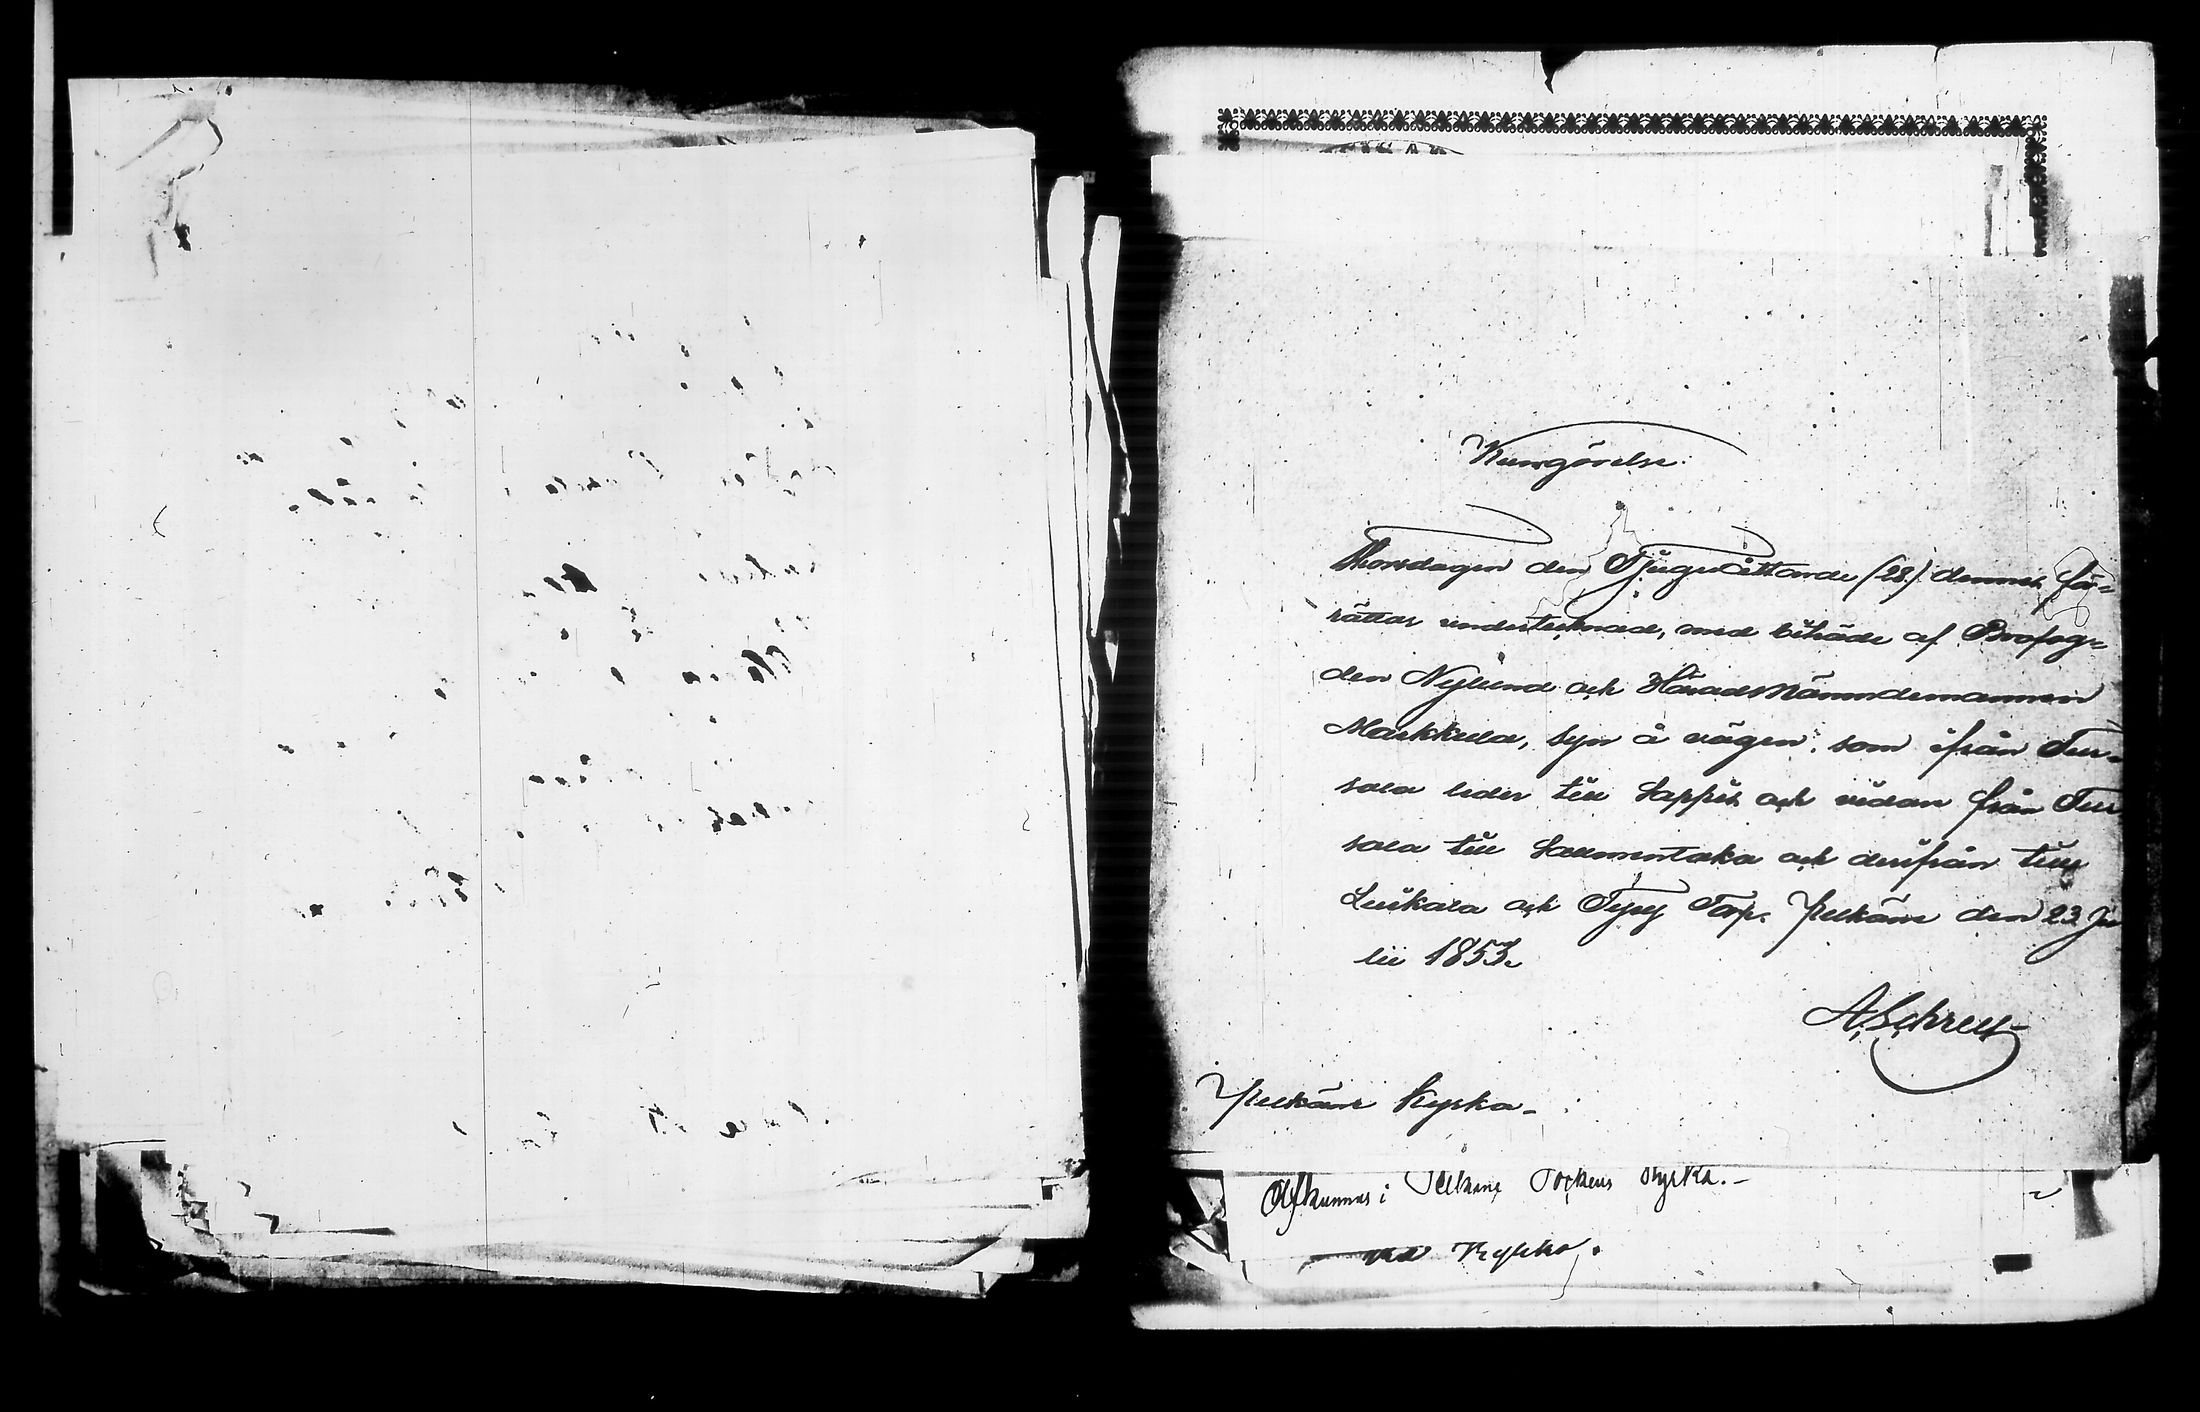 Kungörelse.
Thorsdagen den Tjuguåttande (28) dennes för-
rättar undertecknad, med biträde af Brofog-
den Nylund och Häradsnämndemannen
Markkula, syn å vägen, som ifrån Tur-
sala leder till Sappis och vidare från Tur
sala till Salmentaka och derifrån till
Luikala och Tyry Torp. Pelkäne den 23 Ju
lii 1853.
A. Schrey
Pelkäne Kyrka.
Afkunnas i Pelkäne Sockens Kyrka.